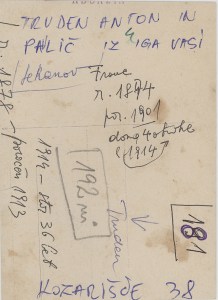 TRUDEN ANTON IN
PALIČ IZ IGA VASI
Franc
r. 1874
por. 1901
doma 4 otroke
1914
r. 1878 - poročen 1913
1914 - star 36 let
192
Truden
181
KOZARIŠČE 38